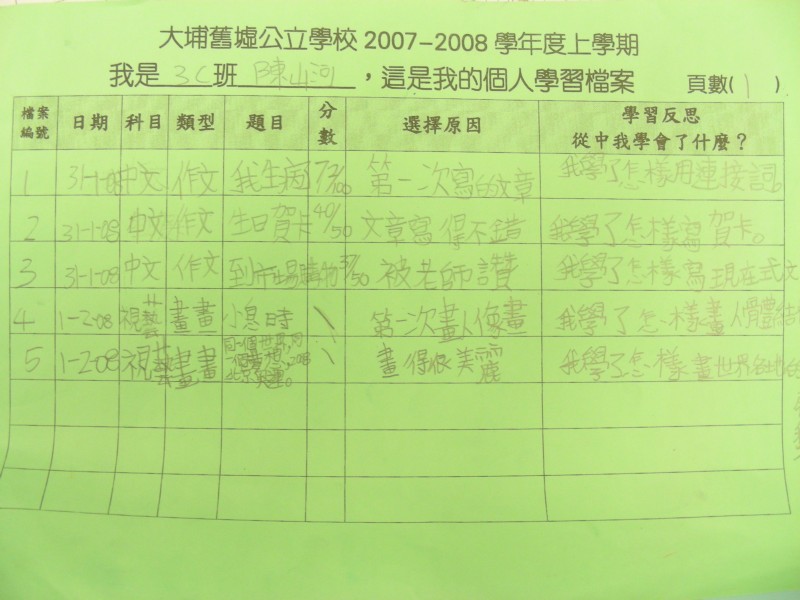 大埔舊墟公立學校 2007-2008 學年度上學期
我是 3C 班 陳山河 ，這是我的個人學習檔案 頁數( 1 )
檔案編號 日期 科目 類型 題目 分數 選擇原因 學習反思 從中我學會了什麼？
1 31-1-08 中文 作文 我生病 73/100 第一次寫的文章 我學了怎樣用連接詞。
2 31-1-08 中文 作文 生日賀卡 40/50 文章寫得不錯 我學了怎樣寫賀卡。
3 31-1-08 中文 作文 到市場購物 37/50 被老師讚 我學了怎樣寫現在式文
4 1-2-08 視藝 畫畫 小息時 \ 第一次畫人像畫 我學了怎樣畫人骨體結
5 1-2-08 視藝 畫畫 同一個世界,同一個夢想,2008北京奧運。 \ 畫得很美麗 我學了怎樣畫世界各地的